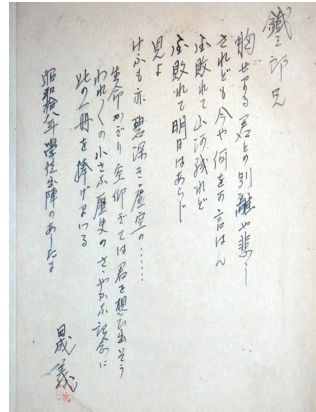 鐵三郎兄
胸せまる君との別離や悲し
されども今や何をか言はん
国敗れて山河残れど
国敗れて明日はあらじ
見よ
けふも亦 碧深き虚空の……
生命かぎり 空仰ぎては君を想ひ出そう
われ〱の小さな歴史のさゝやかな記念に
此の一冊を捧げまいる
昭和拾八年 學徒出陣のあしたに
晟義